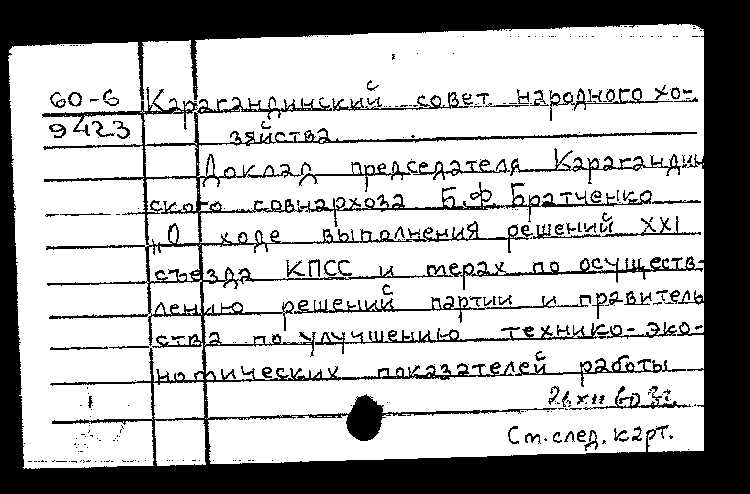 60-6 Карагандинский совет народного хо-
9423 зяйства.
Доклад председателя Карагандин
ского совнархоза Б.Ф. Братченко
„О ходе выполнения решений XXI
съезда КПСС и мерах по осуществ-
лению решений партии и правитель
ства по улучшению технико-эко-
номических показателей работы
См. след. карт.